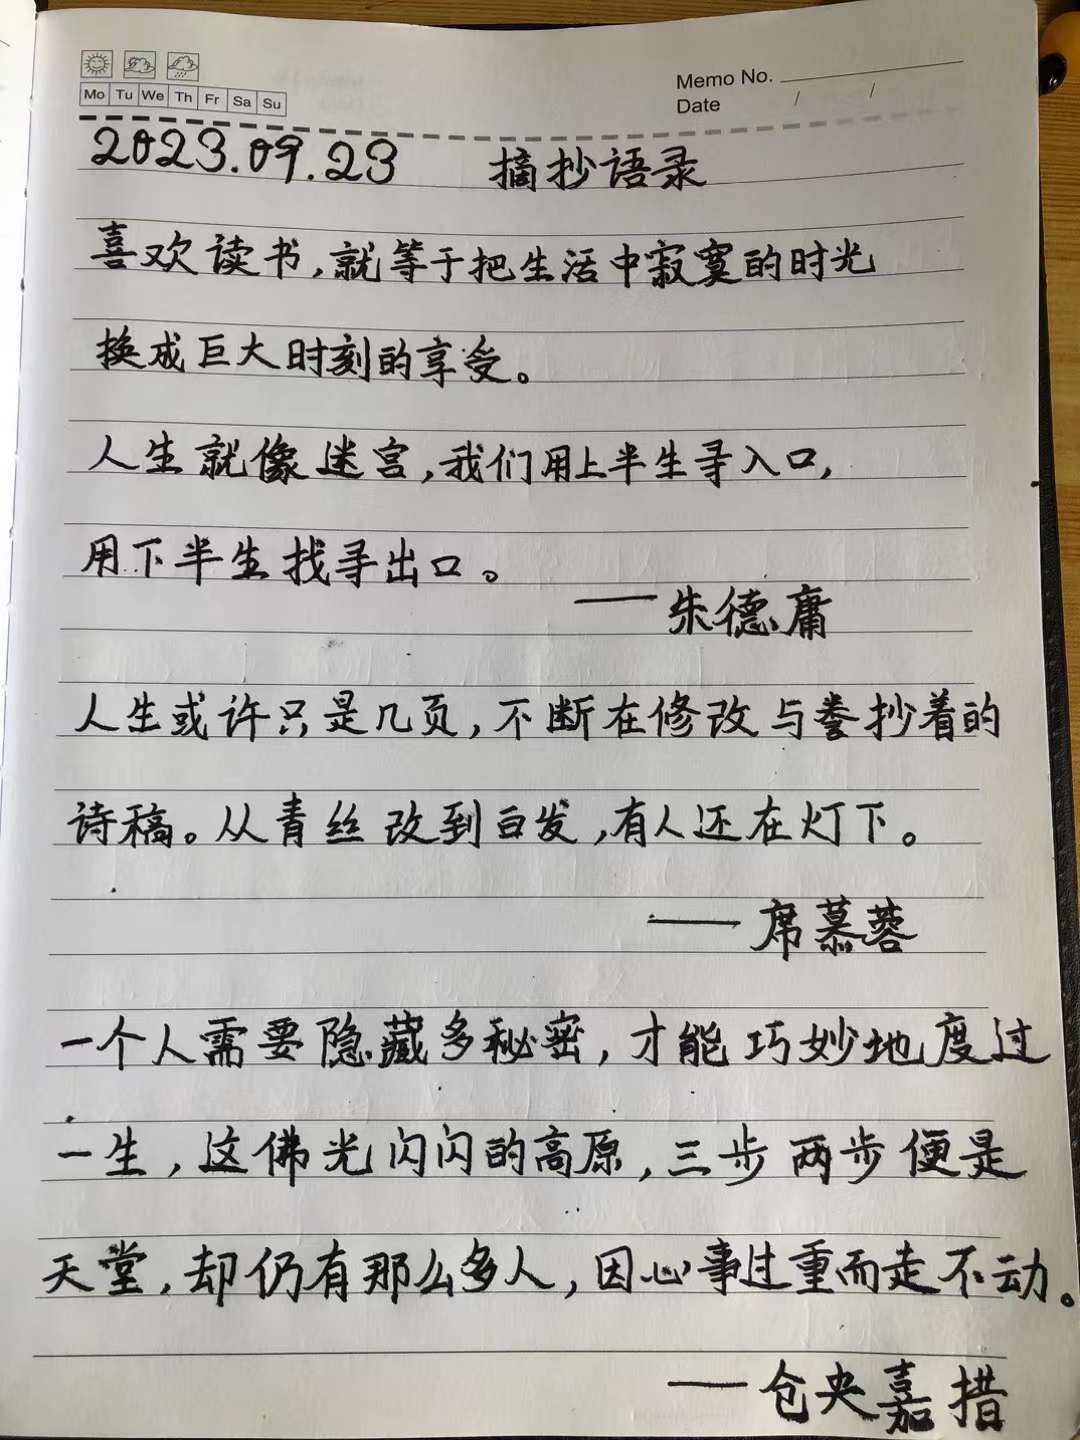 Mo Tu We Th Fr Sa Su
Memo No.
Date / /
2023.09.23 摘抄语录
喜欢读书,就等于把生活中寂寞的时光
换成巨大时刻的享受。
人生就像迷宫,我们用上半生寻入口,
用下半生找寻出口。
——朱德庸
人生或许只是几页,不断在修改与誊抄着的
诗稿。从青丝改到白发,有人还在灯下。
——席慕蓉
一个人需要隐藏多秘密,才能巧妙地度过
一生,这佛光闪闪的高原,三步两步便是
天堂,却仍有那么多人,因心事过重而走不动。
——仓央嘉措